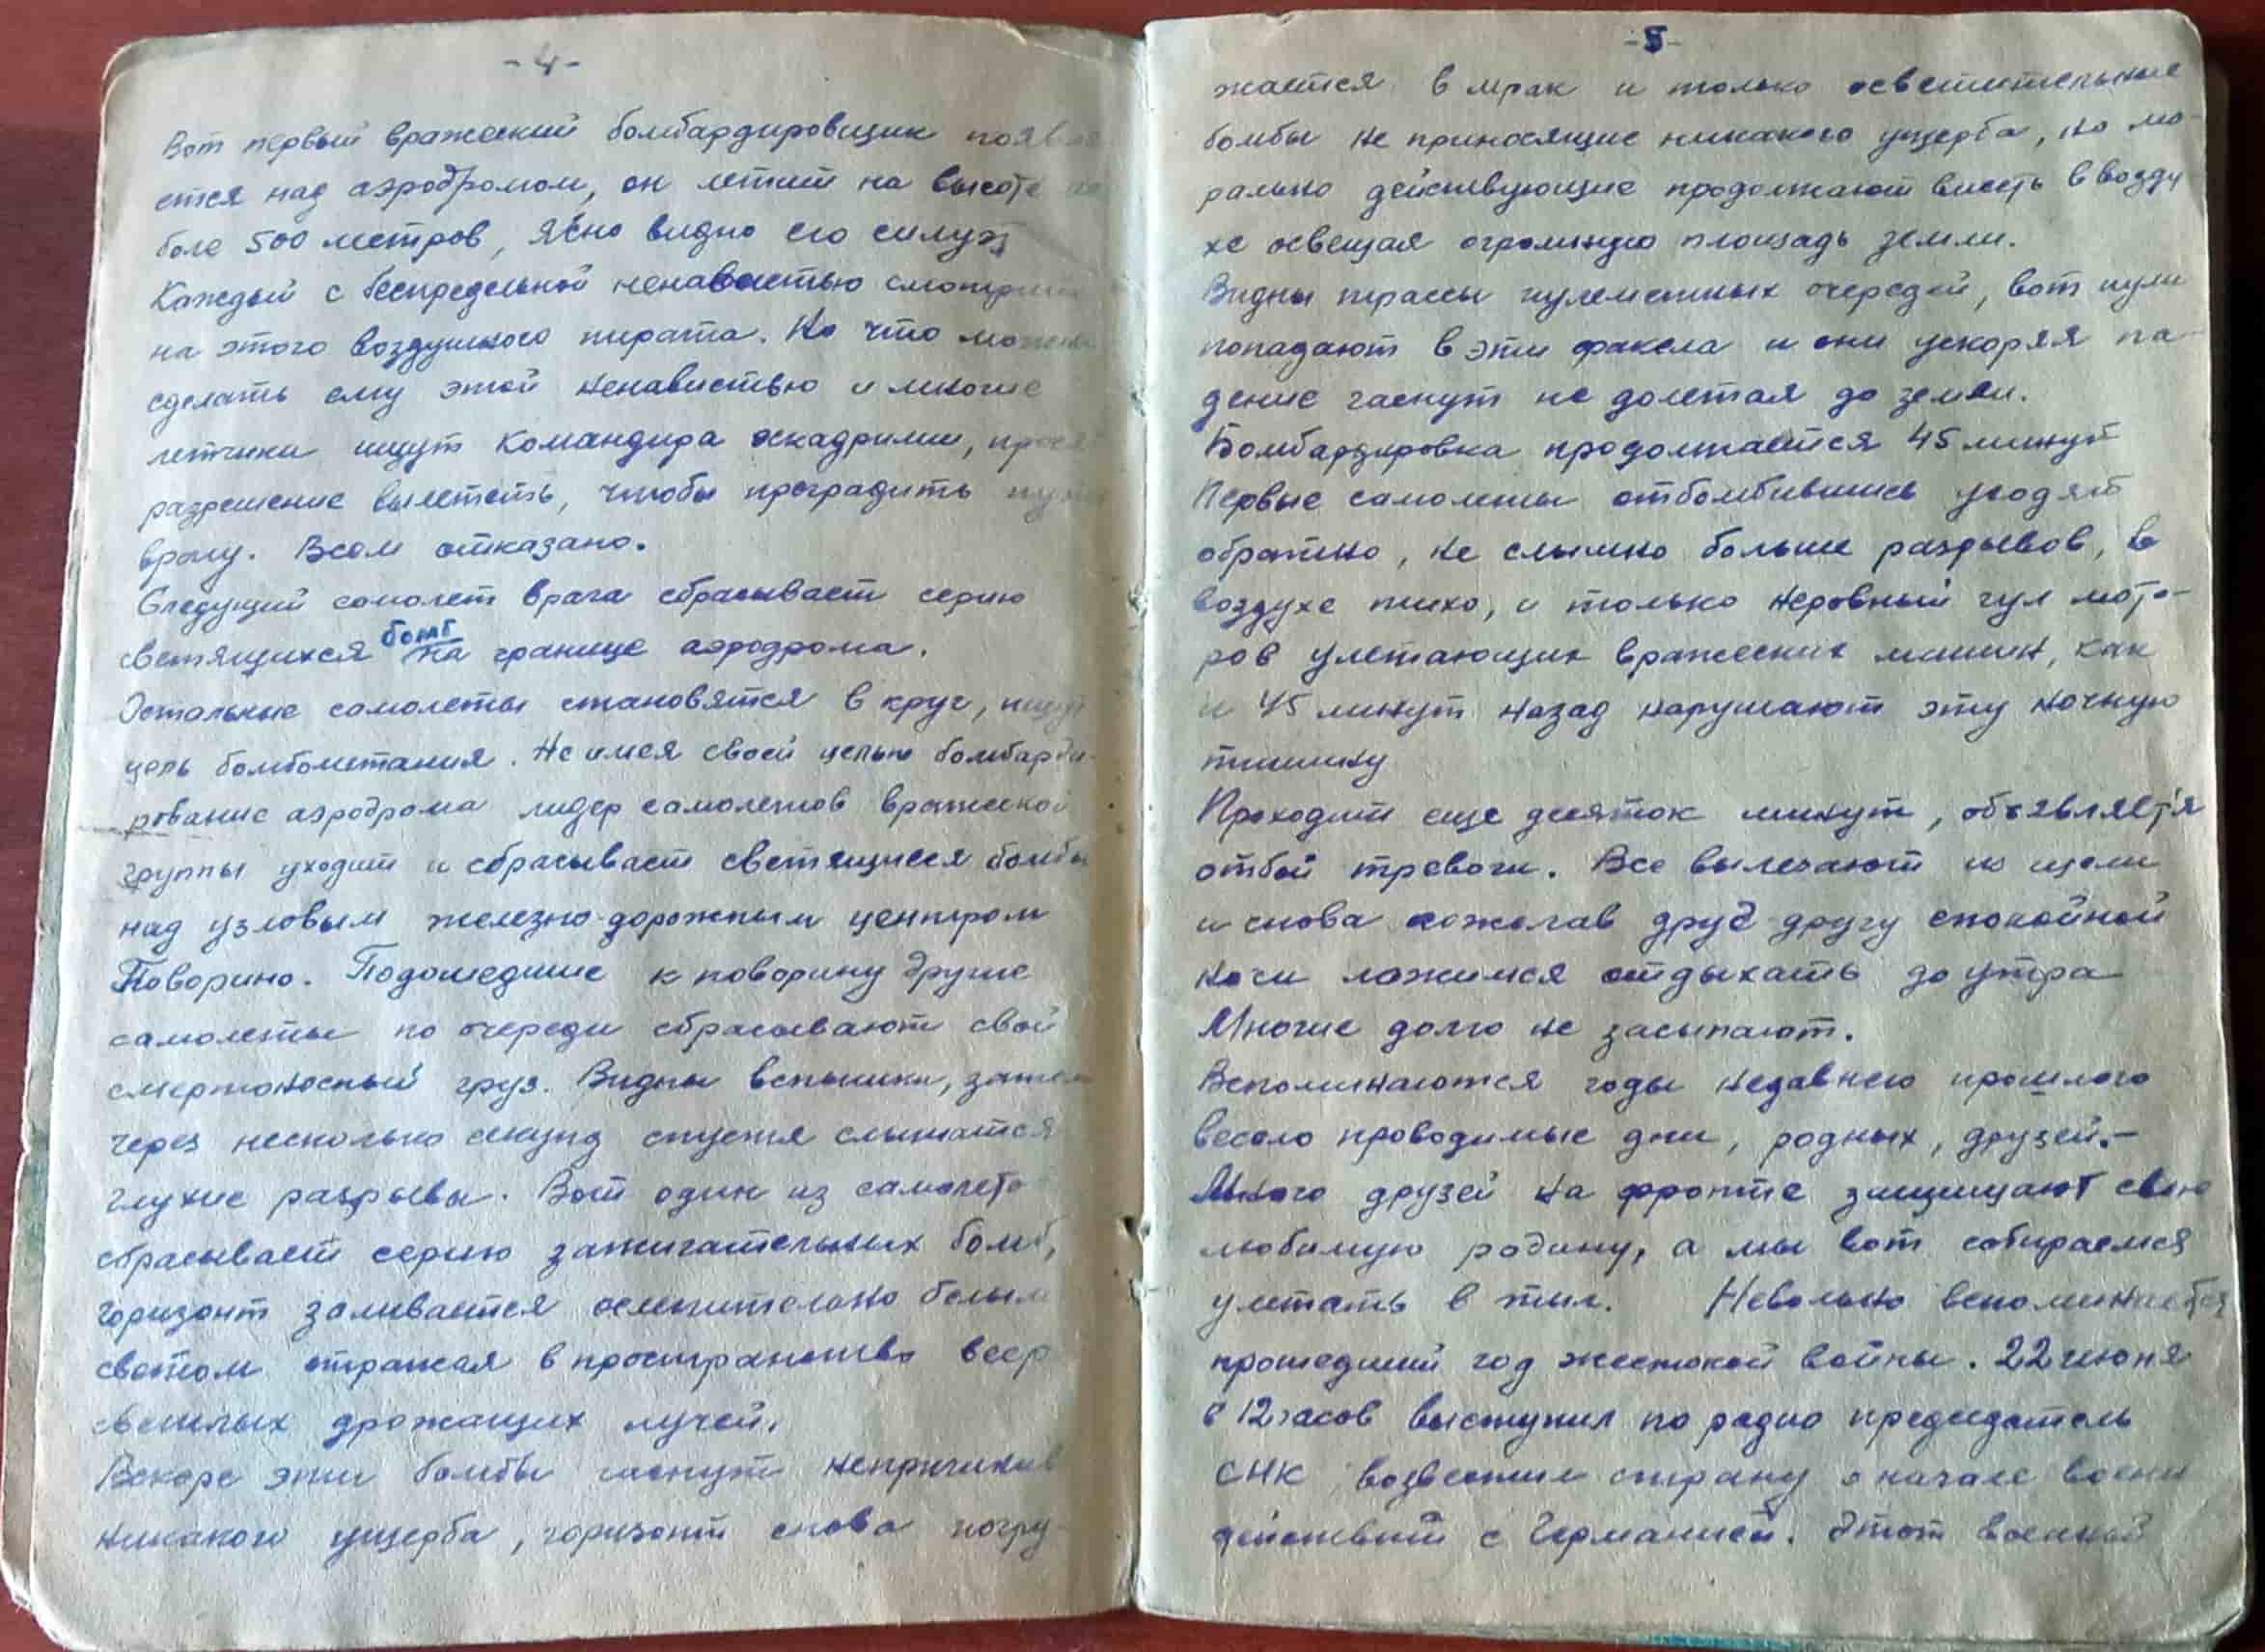 -4-
Вот первый вражеский бомбардировщик появля
ется над аэродромом, он летит на высоте не
боле 500 метров, ясно видно его силуэт
Каждый с беспредельной ненавистью смотрит
на этого воздушного пирата. Но что можешь
сделать ему этой ненавистью и многие
летчики ищут командира эскадрилии, прося
разрешение вылететь, чтобы преградить путь
врагу. Всем отказано.
Следущий самолет врага сбрасывает серию
светящихся бомб на границе аэродрома.
Остальные самолеты становятся в круг, ищут
цель бомбометания. Не имея своей целью бомбарди-
рование аэродрома лидер самолетов вражеской
группы уходит и сбрасывает светящиеся бомбы
над узловым железно-дорожным центром
Поворино. Подошедшие к поворину другие
самолеты по очереди сбрасывают свой
смертоносный груз. Видны вспышки, затем
через несколько секунд спустя слышатся
глухие разрывы. Вот один из самолето
сбрасывает серию зажигательных бомб,
горизонт заливается ослепительно белым
светом отражая в пространство веер
светлых дрожащих лучей.
Вскоре эти бомбы гаснут непричинив
никакого ущерба, горизонт снова погру-
-5-
жается в мрак и только осветительные
бомбы не приносящие никакого ущерба, но мо-
рально действующие продолжают висеть в возду
хе освещая огромную площадь земли.
Видны трассы пулеметных очередей, вот пули
попадают в эти факела и они ускоряя па-
дение гаснут не долетая до земли.
Бомбардировка продолжается 45 минут
Первые самолеты отбомбившись уходят
обратно, не слышно больше разрывов, в
воздухе тихо, и только неровный гул мото-
ров улетающих вражеских машин, как
и 45 минут назад нарушают эту ночную
тишину
Проходит еще десяток минут, объявляется
отбой тревоги. Все вылезают из щели
и снова пожелав друг другу спокойной
ночи ложимся отдыхать до утра
Многие долго не засыпают.
Вспоминаются годы недавнего прошлого
весело проводимые дни, родных, друзей.-
Много друзей на фронте защищают свою
любимую родину, а мы вот собираемся
улетать в тыл. Невольно вспоминается
прошедший год жестокой войны. 22 июня
в 12 часов выступил по радио председатель
СНК возвестил страну о начале воени
действий с Германией. Этот военный